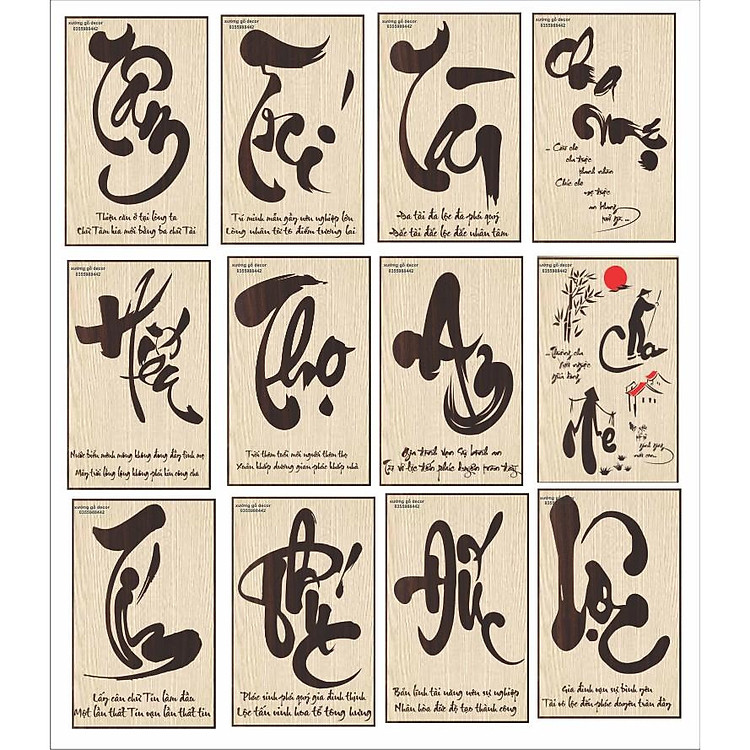 xưởng gỗ decor
0355988442
Tâm
Thiện căn ở tại lòng ta
Chữ Tâm kia mới bằng ba chữ Tài
xưởng gỗ decor
0355988442
Trí
Trí minh mẫn gắn nên nghiệp lớn
Lòng nhân từ tô điểm tương lai
xưởng gỗ decor
0355988442
Tài
Đa tài đa lộc đa phú quý
Đắc tài đắc lộc đắc nhân tâm
xưởng gỗ decor
0355988442
Cha
Cầu cho
cha được
thanh nhàn
Chúc cho
mẹ được
an khang
xưởng gỗ decor
0355988442
Hiếu
Nước biển mênh mông không đong đầy tình mẹ
Mây trời lồng lộng không phủ kín công cha
xưởng gỗ decor
0355988442
Thọ
Trời thêm tuổi mới người thêm thọ
Xuân khắp dương gian phúc khắp nhà
xưởng gỗ decor
0355988442
An
xưởng gỗ decor
0355988442
Cha
Mẹ
xưởng gỗ decor
0355988442
Tín
Lấy câu chữ Tín làm đầu
Một lần thất Tín vạn lần thất tín
xưởng gỗ decor
0355988442
Phúc
Phúc sinh phú quý gia đình thịnh
Lộc tấn vinh hoa tổ tông hưng
xưởng gỗ decor
0355988442
Đức
Bản lĩnh tài năng nên sự nghiệp
Nhân hòa đức độ tạo thành công
xưởng gỗ decor
0355988442
Lộc
Gia đình vạn sự bình yên
Tài vô lộc đến phúc duyên tràn đầy